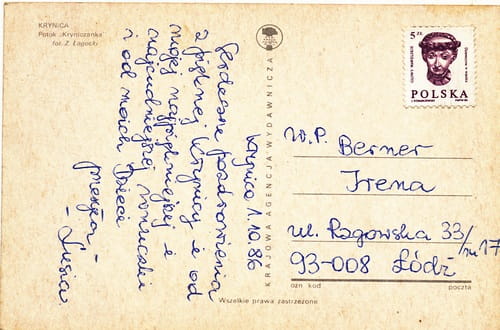 KRYNICA
Potok „Kryniczanka"
fot. Z. Łagocki
Krynica 1.10.86
Serdeczne pozdrowienia
z pięknej Krynicy i od
mojej najpiękniejszej i
najcudniejszej wnuczki
i od moich Dzieci
przesyła –
– Lusia.
KRAJOWA AGENCJA WYDAWNICZA
5 ZŁ
POLSKA
W.P. Berner
Irena
ul. Rzgowska 33/
m 17
93-008 Łódź
ozn kod
poczta
Wszelkie prawa zastrzeżone